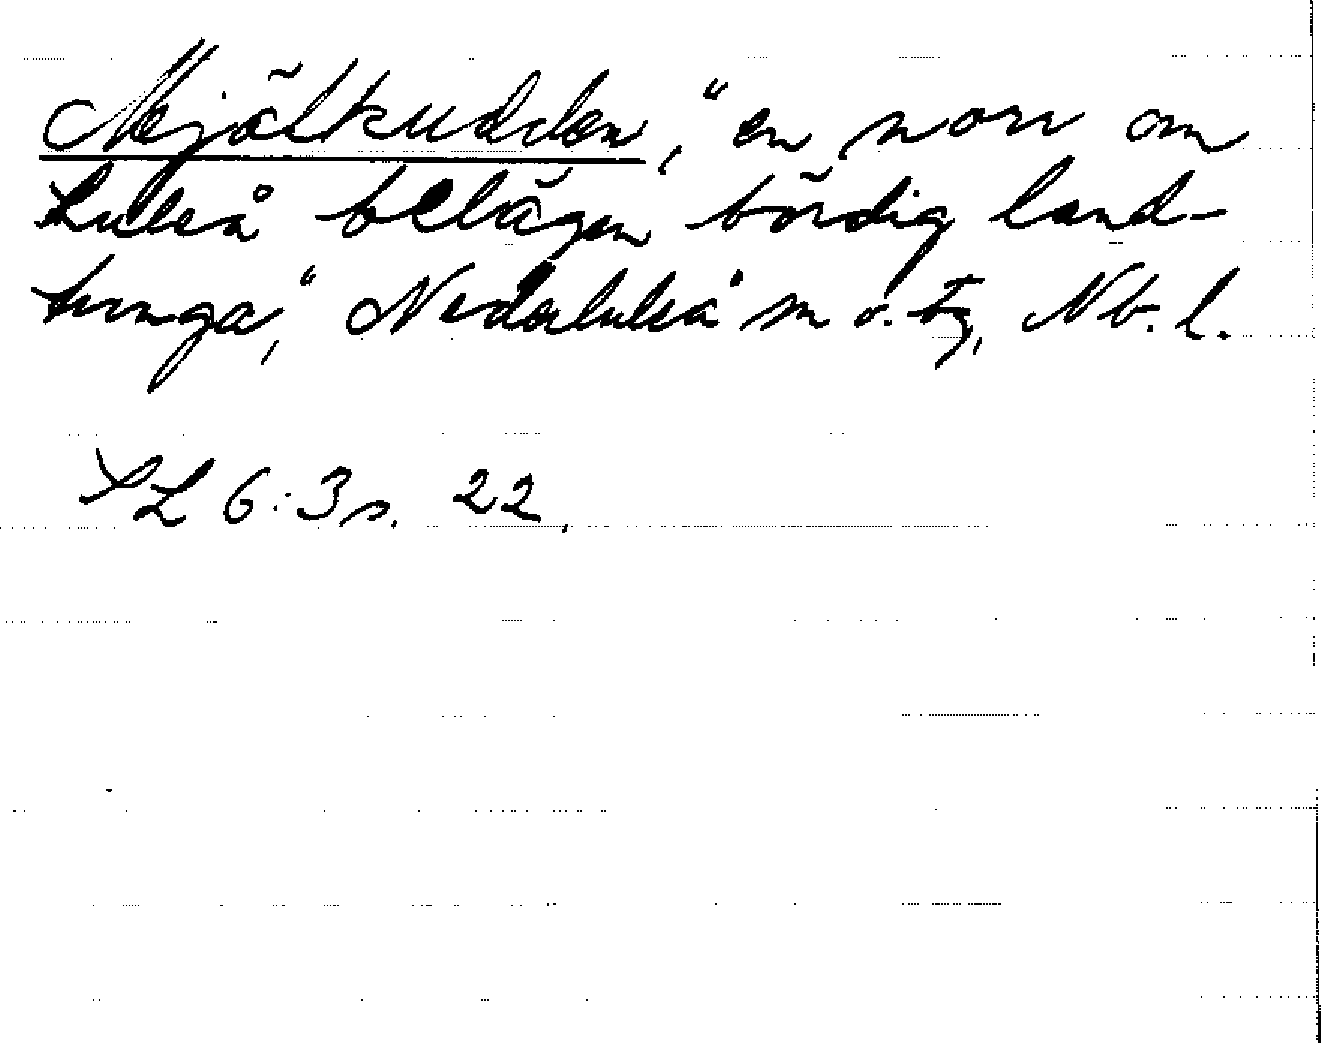 Mjölkudden, "en norr om
Luleå belägen bördig land-
tunga," Nederluleå sn o. tg, Nb. l.
SL 6:3 s. 22.